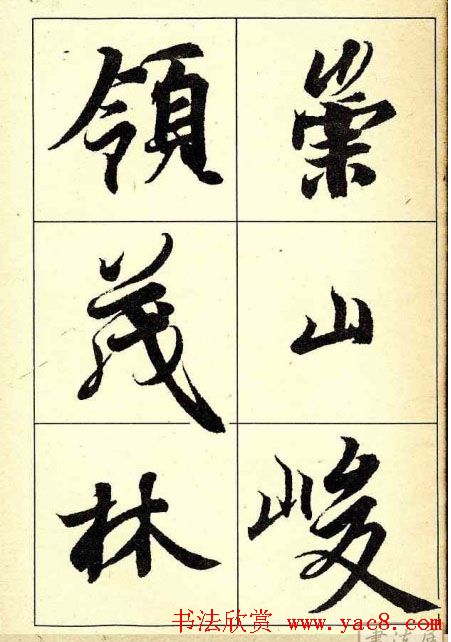 崇山峻
領茂林
书法欣赏 www.yac8.com